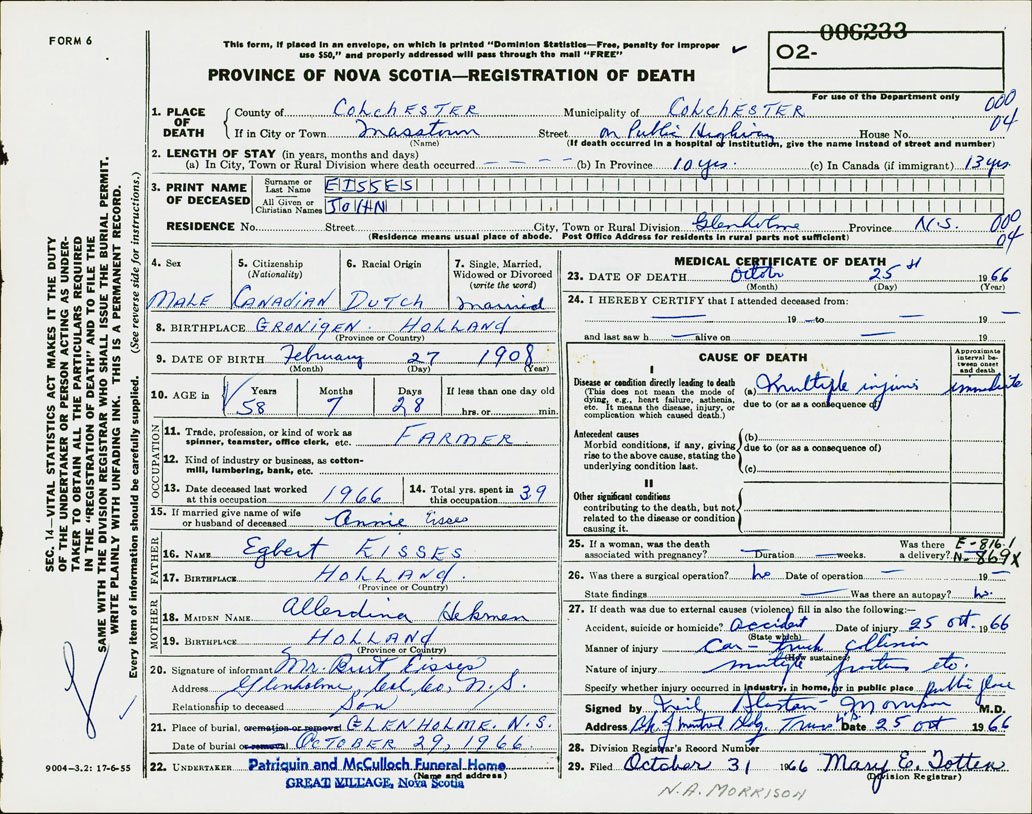 FORM 6
This form, if placed in an envelope, on which is printed "Dominion Statistics—Free, penalty for improper
use $50," and properly addressed will pass through the mail "FREE"
✓
006233
O2-
For use of the Department only
PROVINCE OF NOVA SCOTIA—REGISTRATION OF DEATH
000
04
1. PLACE OF DEATH
County of COLCHESTER Municipality of COLCHESTER
If in City or Town Masstown Street on Public Highway House No.
(Name) (If death occurred in a hospital or institution, give the name instead of street and number)
2. LENGTH OF STAY (in years, months and days)
(a) In City, Town or Rural Division where death occurred – – – – (b) In Province 10 yrs. (c) In Canada (if immigrant) 13 yrs
3. PRINT NAME OF DECEASED
Surname or Last Name EISSES
All Given or Christian Names JOHN
RESIDENCE No. Street City, Town or Rural Division Glenholme Province N.S.
(Residence means usual place of abode. Post Office Address for residents in rural parts not sufficient)
000
04
4. Sex
MALE
5. Citizenship
(Nationality)
CANADIAN
6. Racial Origin
DUTCH
7. Single, Married,
Widowed or Divorced
(write the word)
Married
8. BIRTHPLACE GRONIGEN. HOLLAND
(Province or Country)
9. DATE OF BIRTH February 27 1908
(Month) (Day) (Year)
10. AGE in Years Months Days If less than one day old
✓ 58 7 28 hrs. or min.
OCCUPATION
11. Trade, profession, or kind of work as
spinner, teamster, office clerk, etc. FARMER.
12. Kind of industry or business, as cotton-
mill, lumbering, bank, etc.
13. Date deceased last worked
at this occupation 1966
14. Total yrs. spent in
this occupation 39
15. If married give name of wife
or husband of deceased Annie Eisses
FATHER
16. NAME Egbert EISSES
17. BIRTHPLACE HOLLAND.
(Province or Country)
MOTHER
18. MAIDEN NAME Allerdina Hekman
19. BIRTHPLACE HOLLAND
(Province or Country)
20. Signature of informant Mr. Burt Eisses
Address Glenholme, Col. Co., N.S.
Relationship to deceased Son
21. Place of burial, cremation or removal GLENHOLME. N.S.
Date of burial or removal OCTOBER 29, 1966
22. UNDERTAKER Patriquin and McCulloch Funeral Home
(Name and address)
GREAT VILLAGE, Nova Scotia
MEDICAL CERTIFICATE OF DEATH
23. DATE OF DEATH 25 1966
(Month) (Day) (Year)
24. I HEREBY CERTIFY that I attended deceased from:
— 19 — to — 19 —
and last saw h — alive on — 19
CAUSE OF DEATH
Approximate
interval be-
tween onset
and death
I
Disease or condition directly leading to death
(This does not mean the mode of
dying, e.g., heart failure, asthenia,
etc. It means the disease, injury, or
complication which caused death.)
(a) Multiple injuries immediate
due to (or as a consequence of)
Antecedent causes
Morbid conditions, if any, giving
rise to the above cause, stating the
underlying condition last.
(b)
due to (or as a consequence of)
(c)
II
Other significant conditions
contributing to the death, but not
related to the disease or condition
causing it.
25. If a woman, was the death
associated with pregnancy? — Duration — weeks. Was there
a delivery?
E-816.1
N-869X
26. Was there a surgical operation? no Date of operation — 19 —
State findings — Was there an autopsy? no.
27. If death was due to external causes (violence) fill in also the following:—
Accident, suicide or homicide? accident Date of injury 25 Oct. 1966
(State which)
Manner of injury Car – truck collision
(How sustained)
Nature of injury multiple etc.
Specify whether injury occurred in industry, in home, or in public place public place
Signed by Neil Morrison M.D.
Address Bk. of Montreal Bldg, Truro N.S. Date 25 Oct 1966
28. Division Registrar's Record Number
29. Filed October 31 1966 Mary E. Totten
(Division Registrar)
N.A. MORRISON
SEC. 14—VITAL STATISTICS ACT MAKES IT THE DUTY
OF THE UNDERTAKER OR PERSON ACTING AS UNDER-
TAKER TO OBTAIN ALL THE PARTICULARS REQUIRED
IN THE "REGISTRATION OF DEATH" AND TO FILE THE
SAME WITH THE DIVISION REGISTRAR WHO SHALL ISSUE THE BURIAL PERMIT.
WRITE PLAINLY WITH UNFADING INK. THIS IS A PERMANENT RECORD.
Every item of information should be carefully supplied. (See reverse side for instructions.)
✓
9004-3.2: 17-6-55